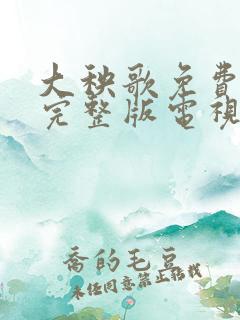 大秧歌免費
完整版電視
喬的毛豆
未经同意禁止转载